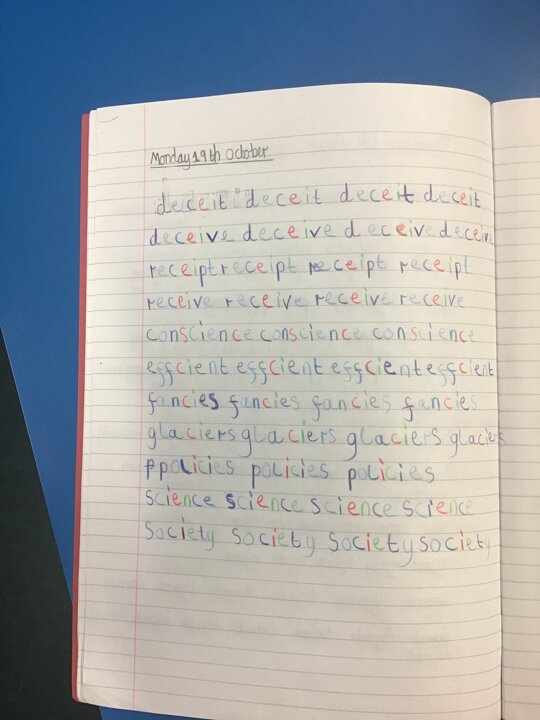 Monday 19th October
deceit deceit deceit deceit
deceive deceive deceive deceive
receipt receipt receipt receipt
receive receive receive receive
conscience conscience conscience
effcient effcient effcient effcient
fancies fancies fancies fancies
glaciers glaciers glaciers glaciers
ppolicies policies policies
science science science science
Society Society Society society